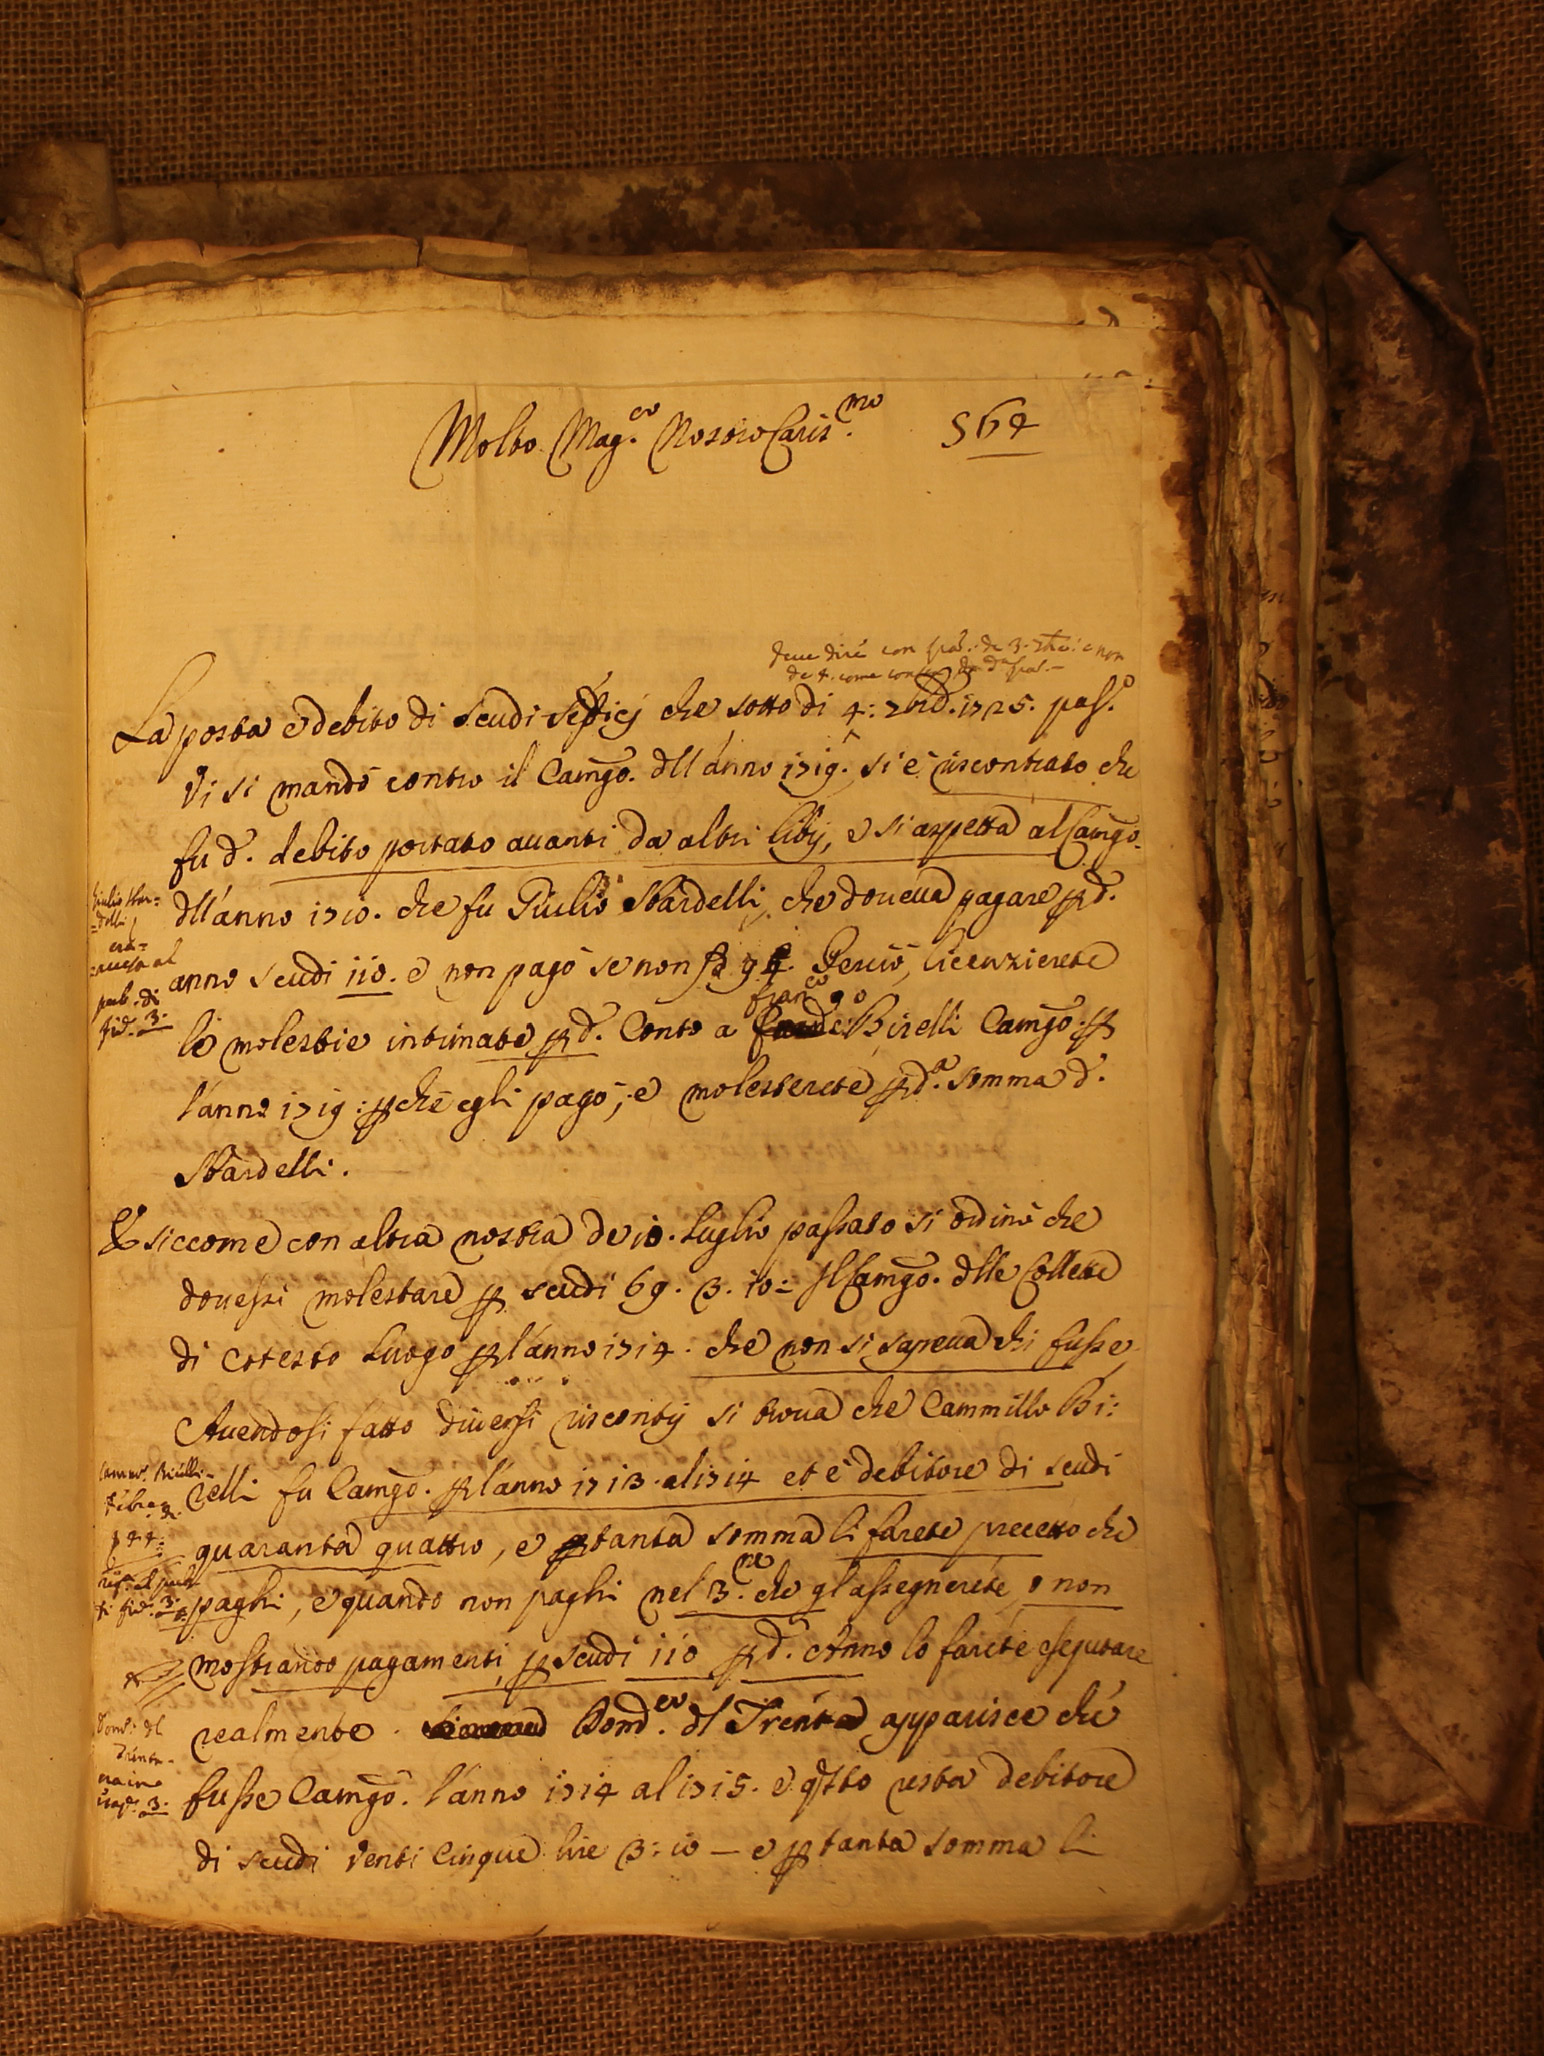 Molto Mag.co Nostro Caris.mo 564
deue dire con
La posta e debito di scudi sedici che sotto di 4: 7bre. 1725. pass.o
Vi si mandò contro il Camgo. dll'anno 1719. si è riscontrato che
fu d. debito portato auanti da altri libij, e si aspetta al Camgo.
dll'anno 1710. che fu Giulio Sbardelli, che doueua pagare p d.
anno scudi 110. e non pagò se non Perciò, licenzierete
le molestie intimate p d. Conto a franco Birelli Camgo. p
l'anno 1719: pche egli pagò; e molesterete p d.a somma d.
Sbardelli.
E siccome con altra nostra de 10. Luglio passato si ordinò che
douessi molestare p scudi 69. 3. 10: Il Camgo. dlle Collette
di cotesto Luogo p l'anno 1714. che non si sapeua chi fusse,
Auendosi fatto diuersi riscontrj si troua che Cammillo Bi:
relli fu Camgo. p l'anno 1713. al 1714 et è debitore di scudi
quaranta quattro, e p tanta somma li farete precetto che
paghi, e quando non paghi nel 3.ne che gl'assegnerete, e non
mostrando pagamenti p scudi 110 p d. Anno lo farete eseputare
realmente. Dom.co dl Trenta apparisce che
fusse Camgo. l'anno 1714 al 1715. e qsto resta debitore
di scudi Venti Cinque lire 3: 10 — e p tanta somma li